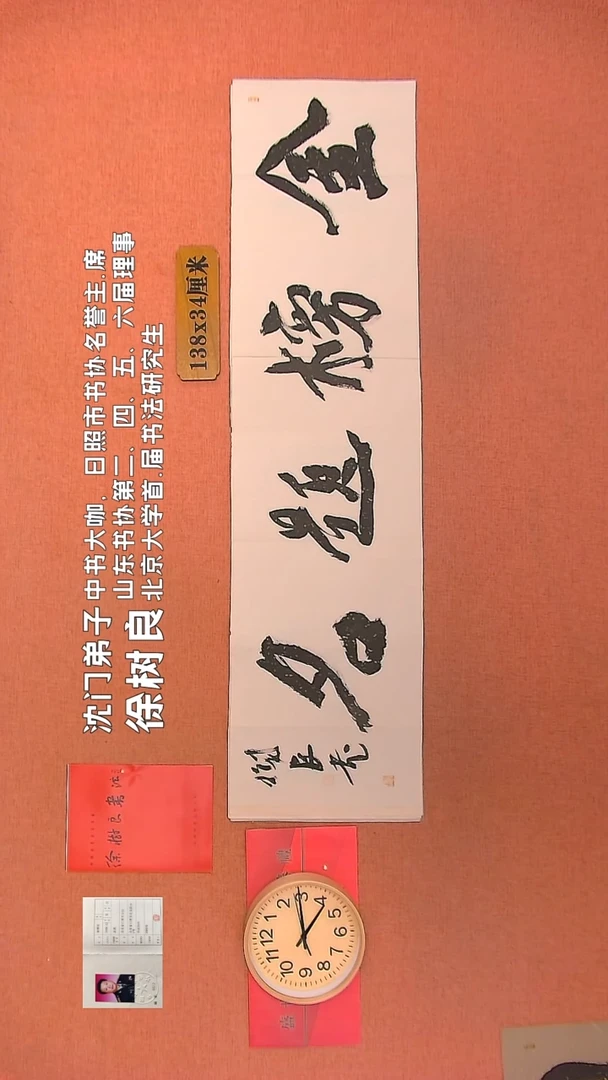 金榜题名
沈门弟子
徐树良
中书大咖、日照市书协名誉主.席
山东书协第二、四、五、六届理事
北京大学首.届书法研究生
138x34厘米
徐树良书法
12
1
2
3
4
5
6
7
8
9
10
11